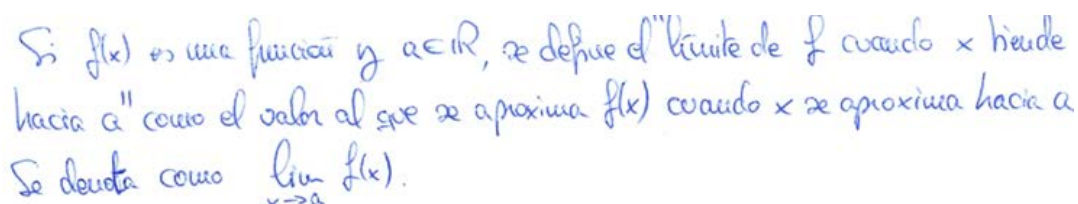 Si f(x) es una función y a∈ℝ, se define el "límite de f cuando x tiende
hacia a" como el valor al que se aproxima f(x) cuando x se aproxima hacia a
Se denota como lim f(x).
x→a